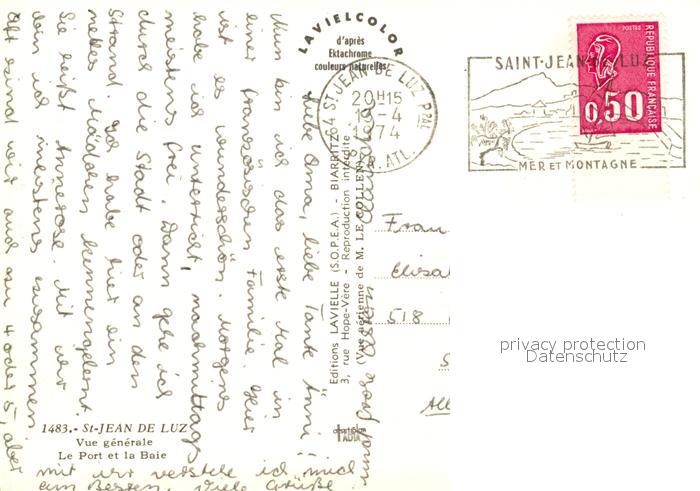 LAVIELCOLOR
d'après
Ektachrome
couleurs naturelles
64 ST JEAN DE LUZ PPAL
20H15
1974
PYR. ATL.
SAINT-JEAN-DE-LUZ
MER ET MONTAGNE
POSTES
RÉPUBLIQUE FRANÇAISE
0,50
Liebe Oma, liebe Tante Änni
Nun bin ich das erste Mal in
einer französischen Familie. Hier
ist es wunderschön. Morgens
habe ich Unterricht, nachmittags
meistens frei. Dann gehe ich
durch die Stadt oder an den
Strand. Ich habe hier ein
nettes Mädchen kennengelernt.
Sie heißt Annerose. Mit der
bin ich meistens zusammen
Oft sind wir auch zu 4 oder 5, aber
mit ihr verstehe ich mich
am Besten. Viele Grüße
Editions LAVIELLE (S.O.P.E.A.) - BIARRITZ
3, rue Hope-Vère - Reproduction interdite
(Vue aérienne de M. LE COLLEN)
Frau
Elisa
518
1483.- St-JEAN DE LUZ
Vue générale
Le Port et la Baie
privacy protection
Datenschutz